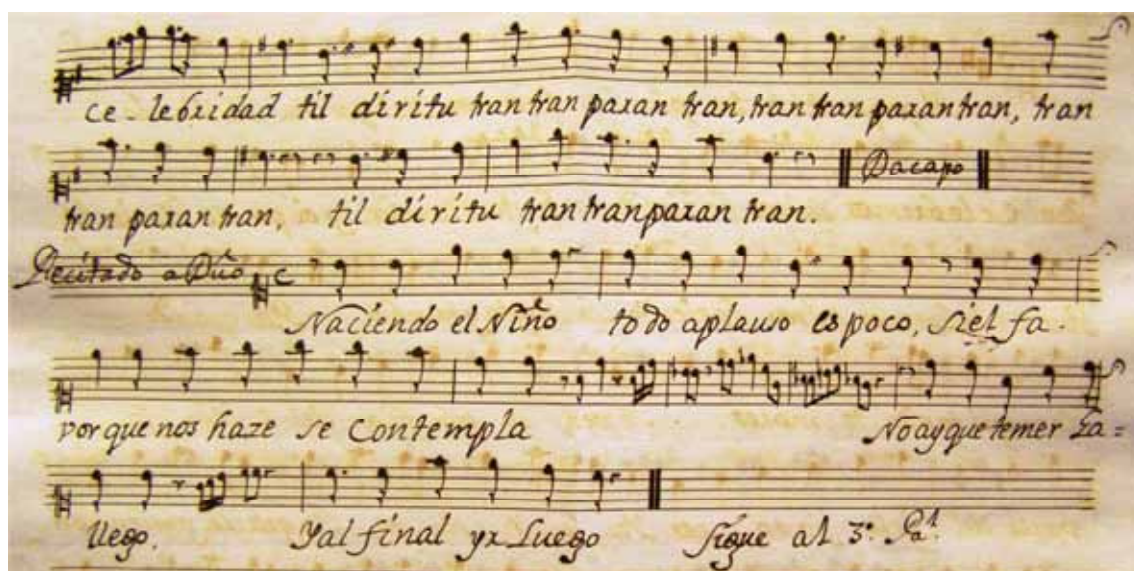 ce - lebridad til diritu tran tran paran tran, tran tran paran tran, tran
tran paran tran, til diritu tran tran paran tran. Dacapo
Recitado a Dúo Naciendo el Niño todo aplauso es poco, si el fa-
vor que nos haze se Contempla No ay que temer za=
llego. Y al final yr Luego sigue al 3º.